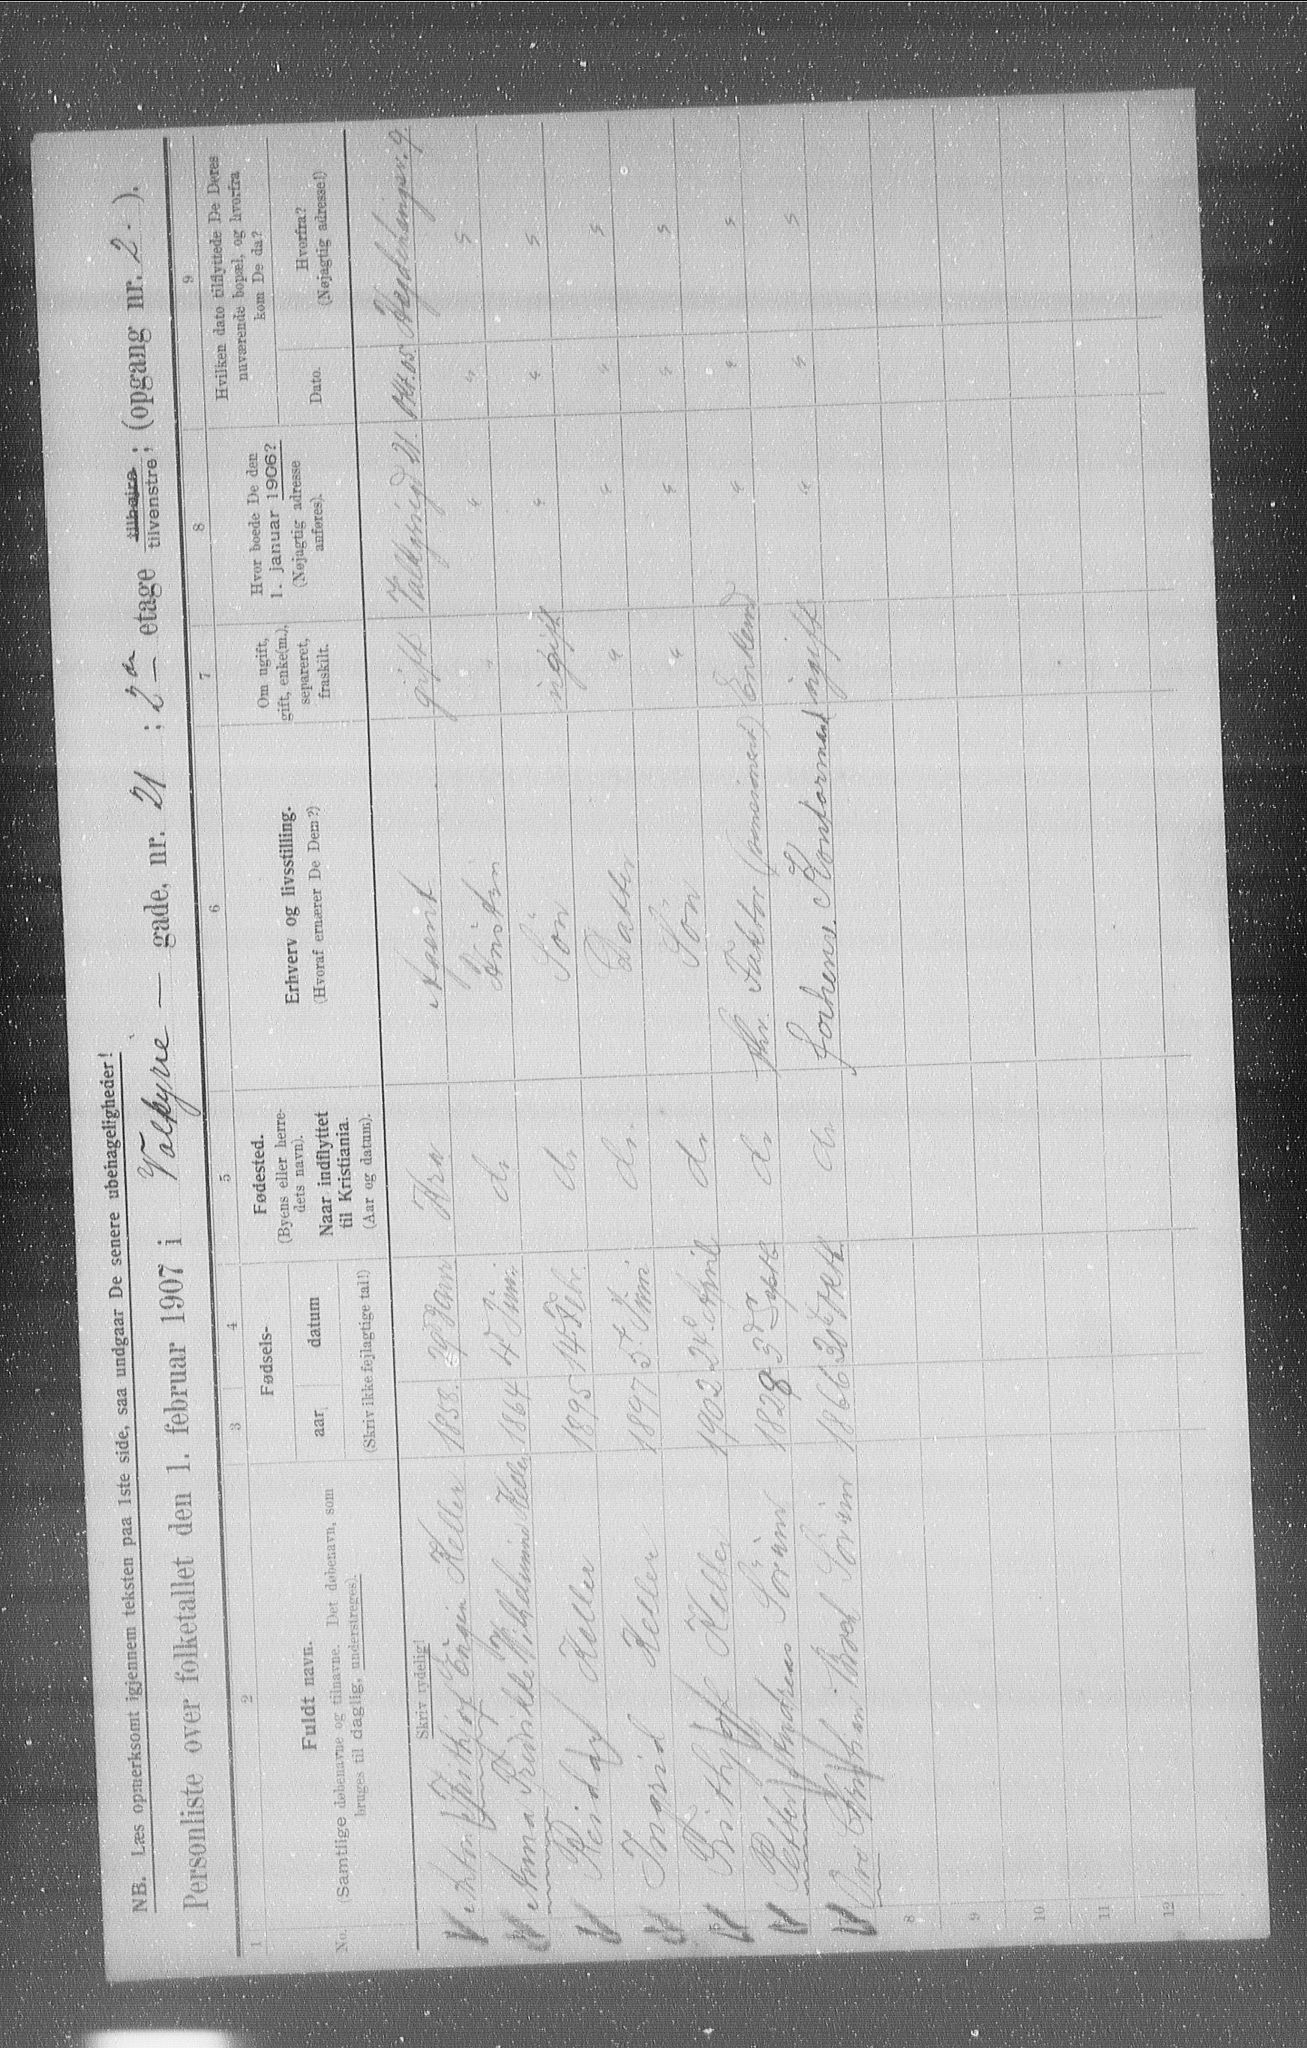 NB. Læs opmerksomt igjennem teksten paa 1ste side, saa undgaar De senere ubehageligheder!
Personliste over folketallet den 1. februar 1907 i Valkyrie — gade, nr. 21 ; 2den — etage tilhøjre tilvenstre ; (opgang nr. 2. ).
1 2 3 4 5 6 7 8 9
No. Fuldt navn. (Samtlige døbenavne og tilnavne. Det døbenavn, som bruges til daglig, understreges). Fødsels- aar datum (Skriv ikke fejlagtige tal!) Fødested. (Byens eller herredets navn). Naar indflyttet til Kristiania. (Aar og datum). Erhverv og livsstilling. (Hvoraf ernærer De Dem?) Om ugift, gift, enke(m.), separeret, fraskilt. Hvor boede De den 1. januar 1906? (Nøjagtig adresse anføres). Hvilken dato tilflyttede De Deres nuværende bopæl, og hvorfra kom De da? Dato. Hvorfra? (Nøjagtig adresse!)
Skriv tydelig!
Anton Frithjof Keller 1858 29 Kra Agent gift Valkyriegd 21. Okt. 05 Hegdehaugsv. 9
Anna Fredrikke Vilhelmine Keller 1864 4 Juni do " " " "
Reidar Keller 1895 14 Febr. do Søn ugift " " "
Ingrid Keller 1897 5 Juni do Datter " " " "
Frithjof Keller 1902 24 April do Søn " " " "
Petter Andreas 1828 3 Septb do fhv. (pensioneret) Enkemd " " "
1866 do forhenv. Kontormand ugift " " "
8
9
10
11
12